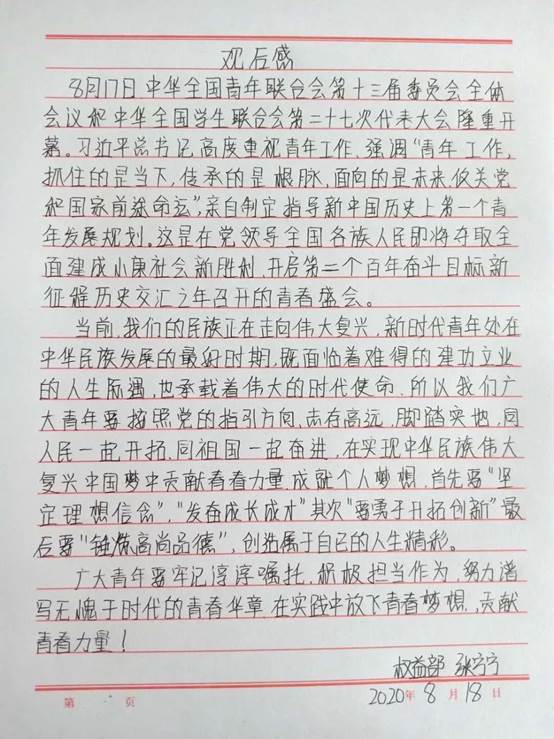 观后感
8月17日中华全国青年联合会第十三届委员会全体
会议和中华全国学生联合会第二十七次代表大会隆重开
幕。习近平总书记高度重视青年工作,强调“青年工作,
抓住的是当下,传承的是根脉,面向的是未来,攸关党
和国家前途命运”,亲自制定指导新中国历史上第一个青
年发展规划。这是在党领导全国各族人民即将夺取全
面建成小康社会新胜利,开启第二个百年奋斗目标新
征程历史交汇之年召开的青春盛会。
当前,我们的民族正在走向伟大复兴,新时代青年处在
中华民族发展的最好时期,既面临着难得的建功立业
的人生际遇,也承载着伟大的时代使命。所以我们广
大青年要按照党的指引方向,志存高远,脚踏实地,同
人民一起开拓,同祖国一起奋进,在实现中华民族伟大
复兴中国梦中贡献青春力量,成就个人梦想,首先要“坚
定理想信念”,“发奋成长成才”其次“要勇于开拓创新”最
后要“锤炼高尚品德”,创造属于自己的人生精彩。
广大青年要牢记谆谆嘱托,积极担当作为,努力谱
写无愧于时代的青春华章,在实践中放飞青春梦想,贡献
青春力量!
权益部 张宁宁
第 页 2020年8月18日